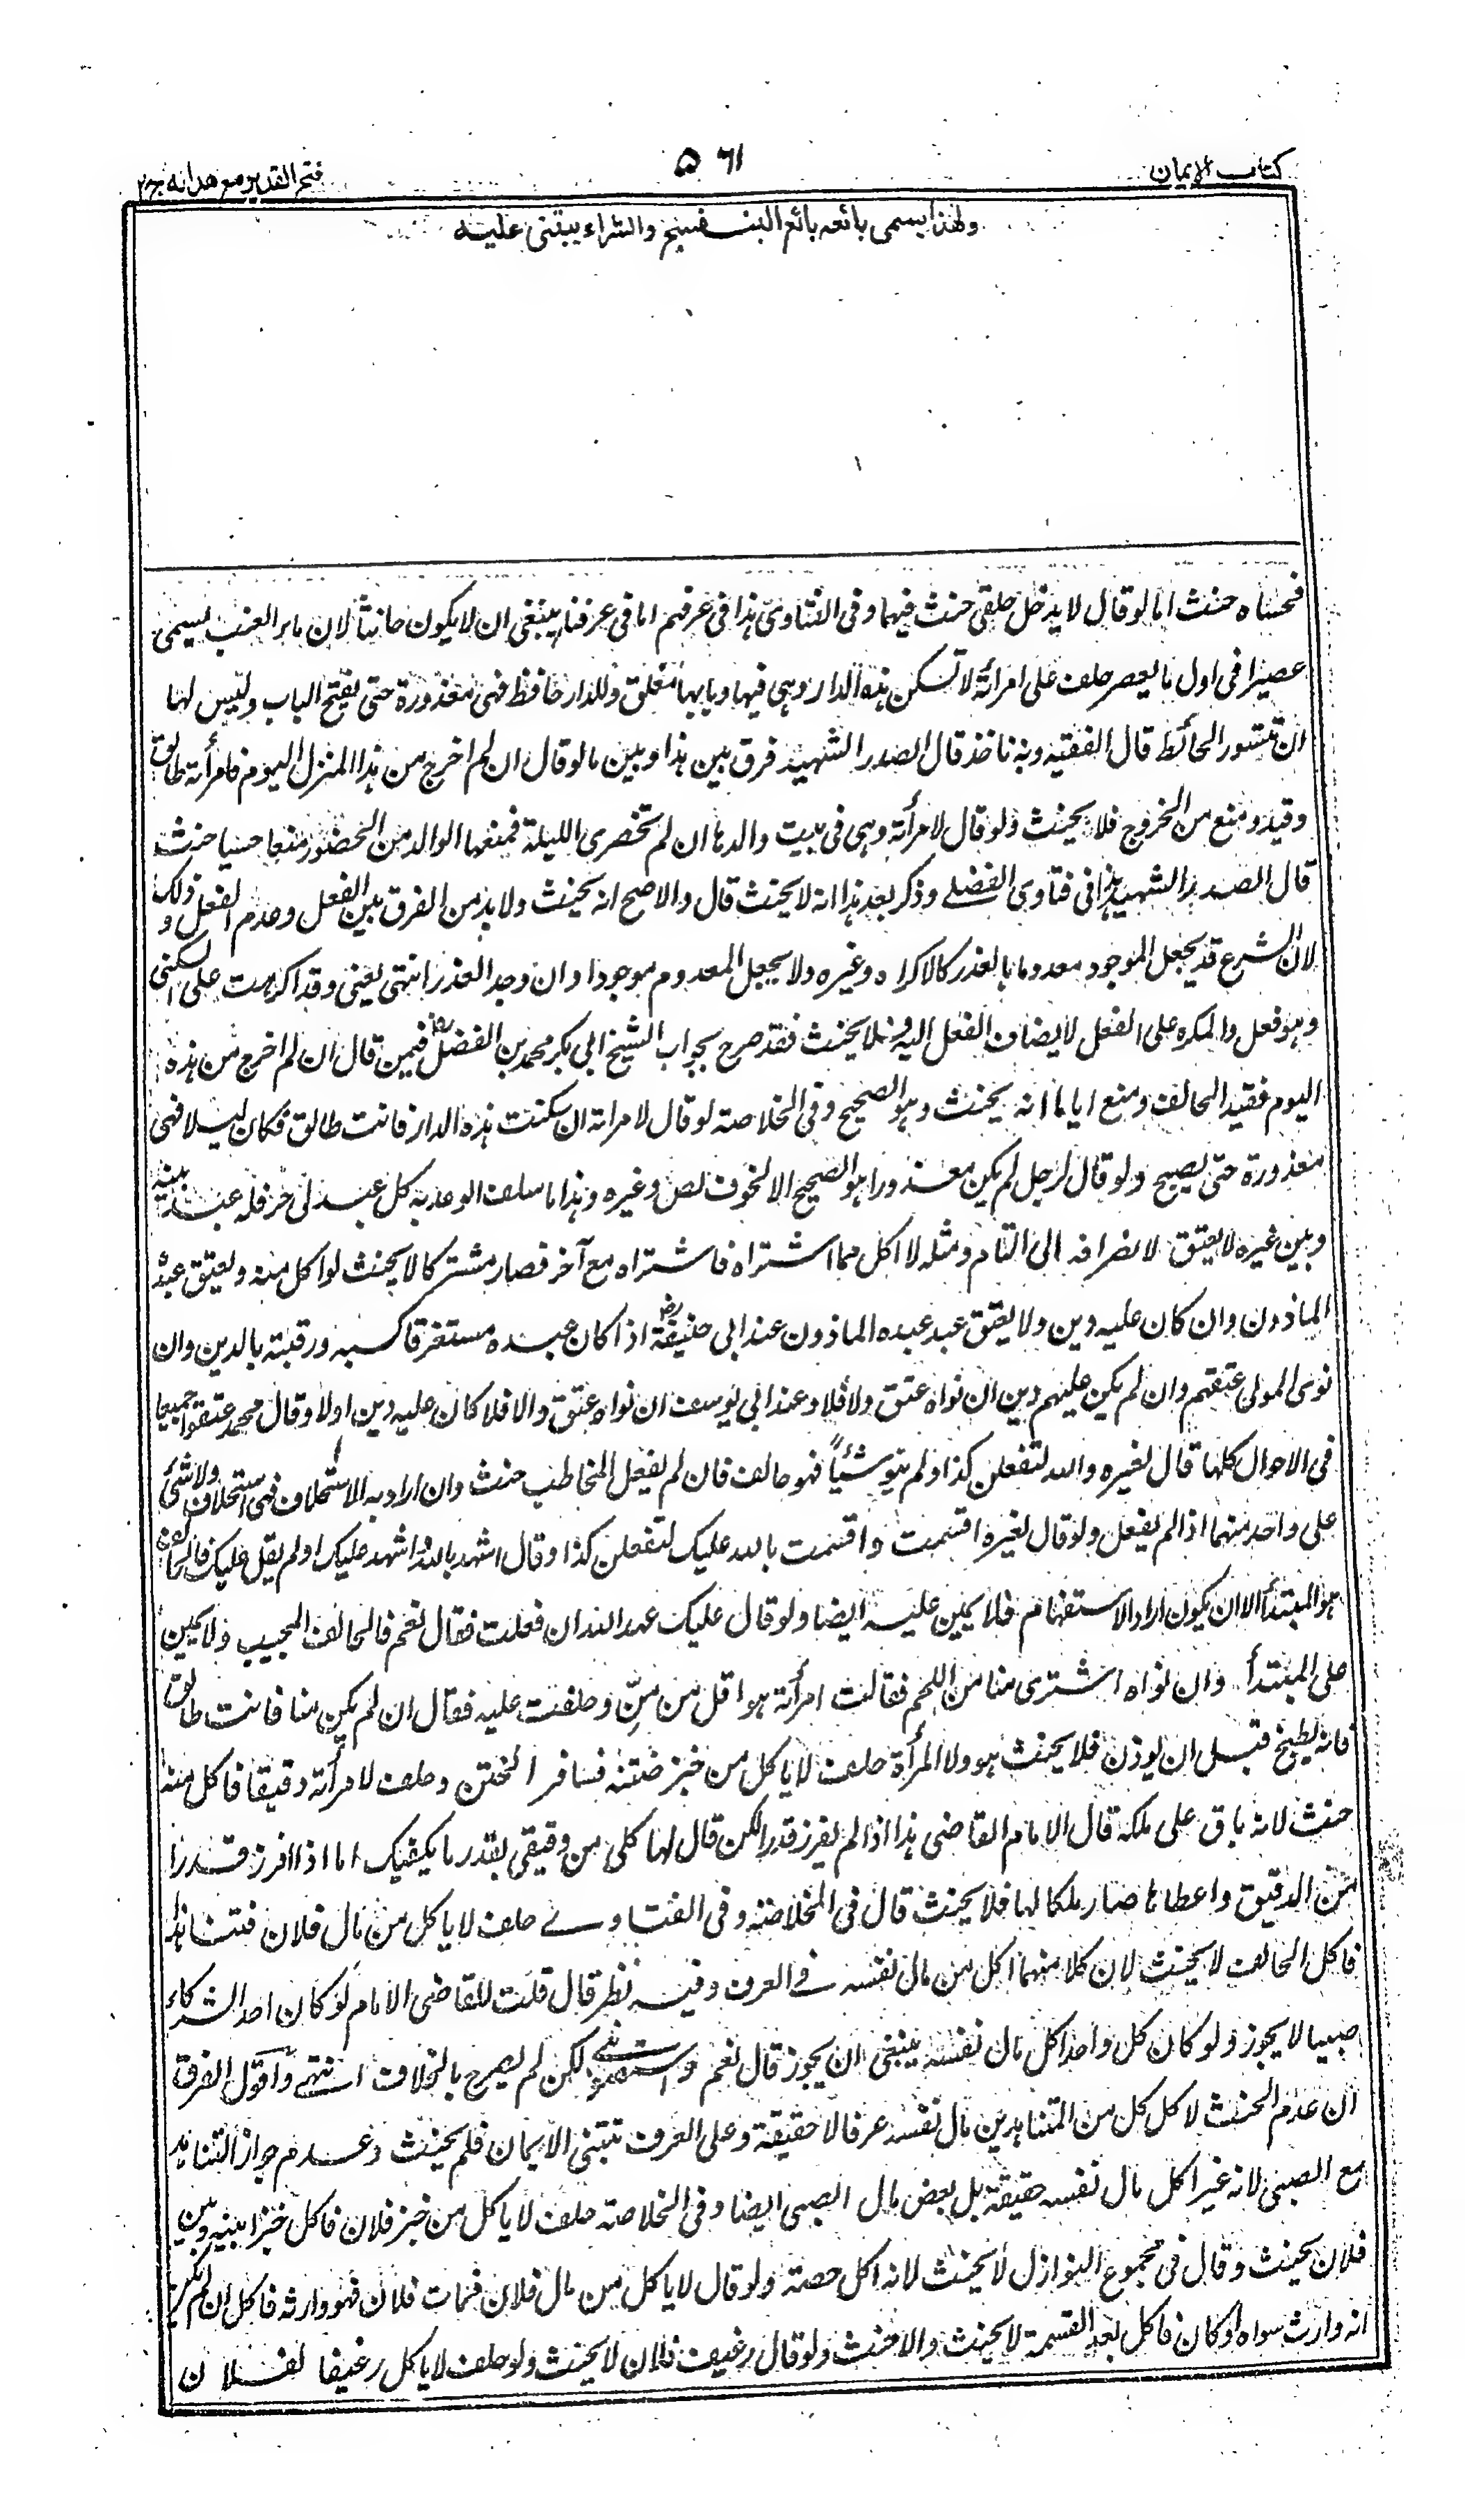 كتاب الايمان
٥٦١
فتح القدير مع هدايه ج٢
ولهذا يسمى بائعه بائع البنفسج والشراء يبتنى عليه
فحساه حنث اما لو قال لا يدخل حلقى حنث فيهما وفى الفتاوى هذا فى عرفهم اما فى عرفنا ينبغى ان لا يكون حانثا لان ماء العنب يسمى
عصيرا فى اول ما يعصر حلف على امرأته لا تسكن هذه الدار وهى فيها وبابها مغلق وللدار حافظ فهى معذورة حتى يفتح الباب وليس لها
ان تتسور الحائط قال الفقيه وبه ناخذ قال الصدر الشهيد فرق بين هذا وبين ما لو قال ان لم اخرج من هذا المنزل اليوم فامرأته طالق
وقيد ومنع من الخروج فلا يحنث ولو قال لامرأته وهى فى بيت والدها ان لم تحضرى الليلة فمنعها الوالد من الحضور منعا حسيا حنث
قال الصدر الشهيد هذا فى فتاوى الفضلے وذكر بعد هذا انه لا يحنث قال والاصح انه يحنث ولا بد من الفرق بين الفعل وعدم الفعل وذلك
لان الشرع قد يجعل الموجود معدوما بالعذر كالاكراه وغيره ولا يجعل المعدوم موجودا وان وجد العذر انتهى يعنى وقد اكرهت على السكنى
وهو فعل والمكره على الفعل لا يضاف الفعل اليه فلا يحنث فقد صرح بجواب الشيخ ابى بكر محمد بن الفضل فيمن قال ان لم اخرج من هذه
اليوم فقيد الحالف ومنع اياما انه يحنث وهو الصحيح وفى الخلاصة لو قال لامراته ان سكنت هذه الدار فانت طالق فكان ليلا فهى
معذورة حتى يصبح ولو قال لرجل لم يكن معذورا هو الصحيح الا لخوف لص وغيره وهذا ما سلف الوعد به كل عبد لى حر فله عبد بينه
وبين غيره لا يعتق لانصرافه الى التام ومثله لا اكل مما اشتراه فاشتراه مع آخر فصار مشتركا لا يحنث لو اكل منه ويعتق عبده
الماذون وان كان عليه دين ولا يعتق عبد عبده الماذون عند ابى حنيفة رض اذا كان عبده مستغرقا كسبه ورقبته بالدين وان
نوى المولى عتقهم وان لم يكن عليهم دين ان نواه عتق ولا فلا وعند ابى يوسف ان نواه عتق والا فلا كان عليه دين اولا وقال محمد عتقوا جميعا
فى الاحوال كلها قال لغيره والله لتفعلن كذا ولم ينو شيئاً فهو حالف فان لم يفعل المخاطب حنث وان اراد به الاستحلاف فهى استحلاف ولا شئ
على واحد منهما اذا لم يفعل ولو قال لغيره اقسمت واقسمت بالله عليك لتفعلن كذا وقال اشهد بالله واشهد عليك او لم يقل عليك فالحالف
هو المبتدأ الا ان يكون اراد الاستفهام فلا يمين عليه ايضا ولو قال عليك عهد الله ان فعلت فقال نعم فالحالف المجيب ولا يمين
على المبتدأ وان نواه اشترى منا من اللحم فقالت امرأته هو اقل من منّ وحلفت عليه فقال ان لم يكن منا فانت طالق
فانه يطبخ قبل ان يوزن فلا يحنث هو ولا المرأة حلف لا ياكل من خبز ختنه فسافر الختن وحلف لامرأته دقيقا فاكل منه
حنث لانه باق على ملكه قال الامام القاضى هذا اذا لم يفرز قدرا لكن قال لها كلى من دقيقى بقدر ما يكفيك اما اذا افرز قدرا
من الدقيق واعطاها صار ملكا لها فلا يحنث قال فى الخلاصة وفى الفتاوے حلف لا ياكل من مال فلان فتناهدا
فاكل الحالف لا يحنث لان كلا منهما اكل من مال نفسه فى العرف وفيه نظر قال قلت للقاضى الامام لو كان احد الشركاء
صبيا لا يجوز ولو كان كل واحد اكل مال نفسه ينبغى ان يجوز قال نعم لكن لم يصرح بالخلاف انتهے واقول الفرق
ان عدم الحنث لاكل كل من المتناهدين مال نفسه عرفا لا حقيقة وعلى العرف تبتنى الايمان فلم يحنث وعدم جواز التناهد
مع الصبى لانه غير اكل مال نفسه حقيقة بل بعض مال الصبى ايضا وفى الخلاصة حلف لا ياكل من خبز فلان فاكل خبزا بينه وبين
فلان يحنث وقال فى مجموع النوازل لا يحنث لانه اكل حصته ولو قال لا ياكل من مال فلان فمات فلان فهو وارثه فاكل ان لم يكن
انه وارث سواه او كان فاكل بعد القسمة لا يحنث والا حنث ولو قال رغيف فلان لا يحنث ولو حلف لا ياكل رغيفا لفلان